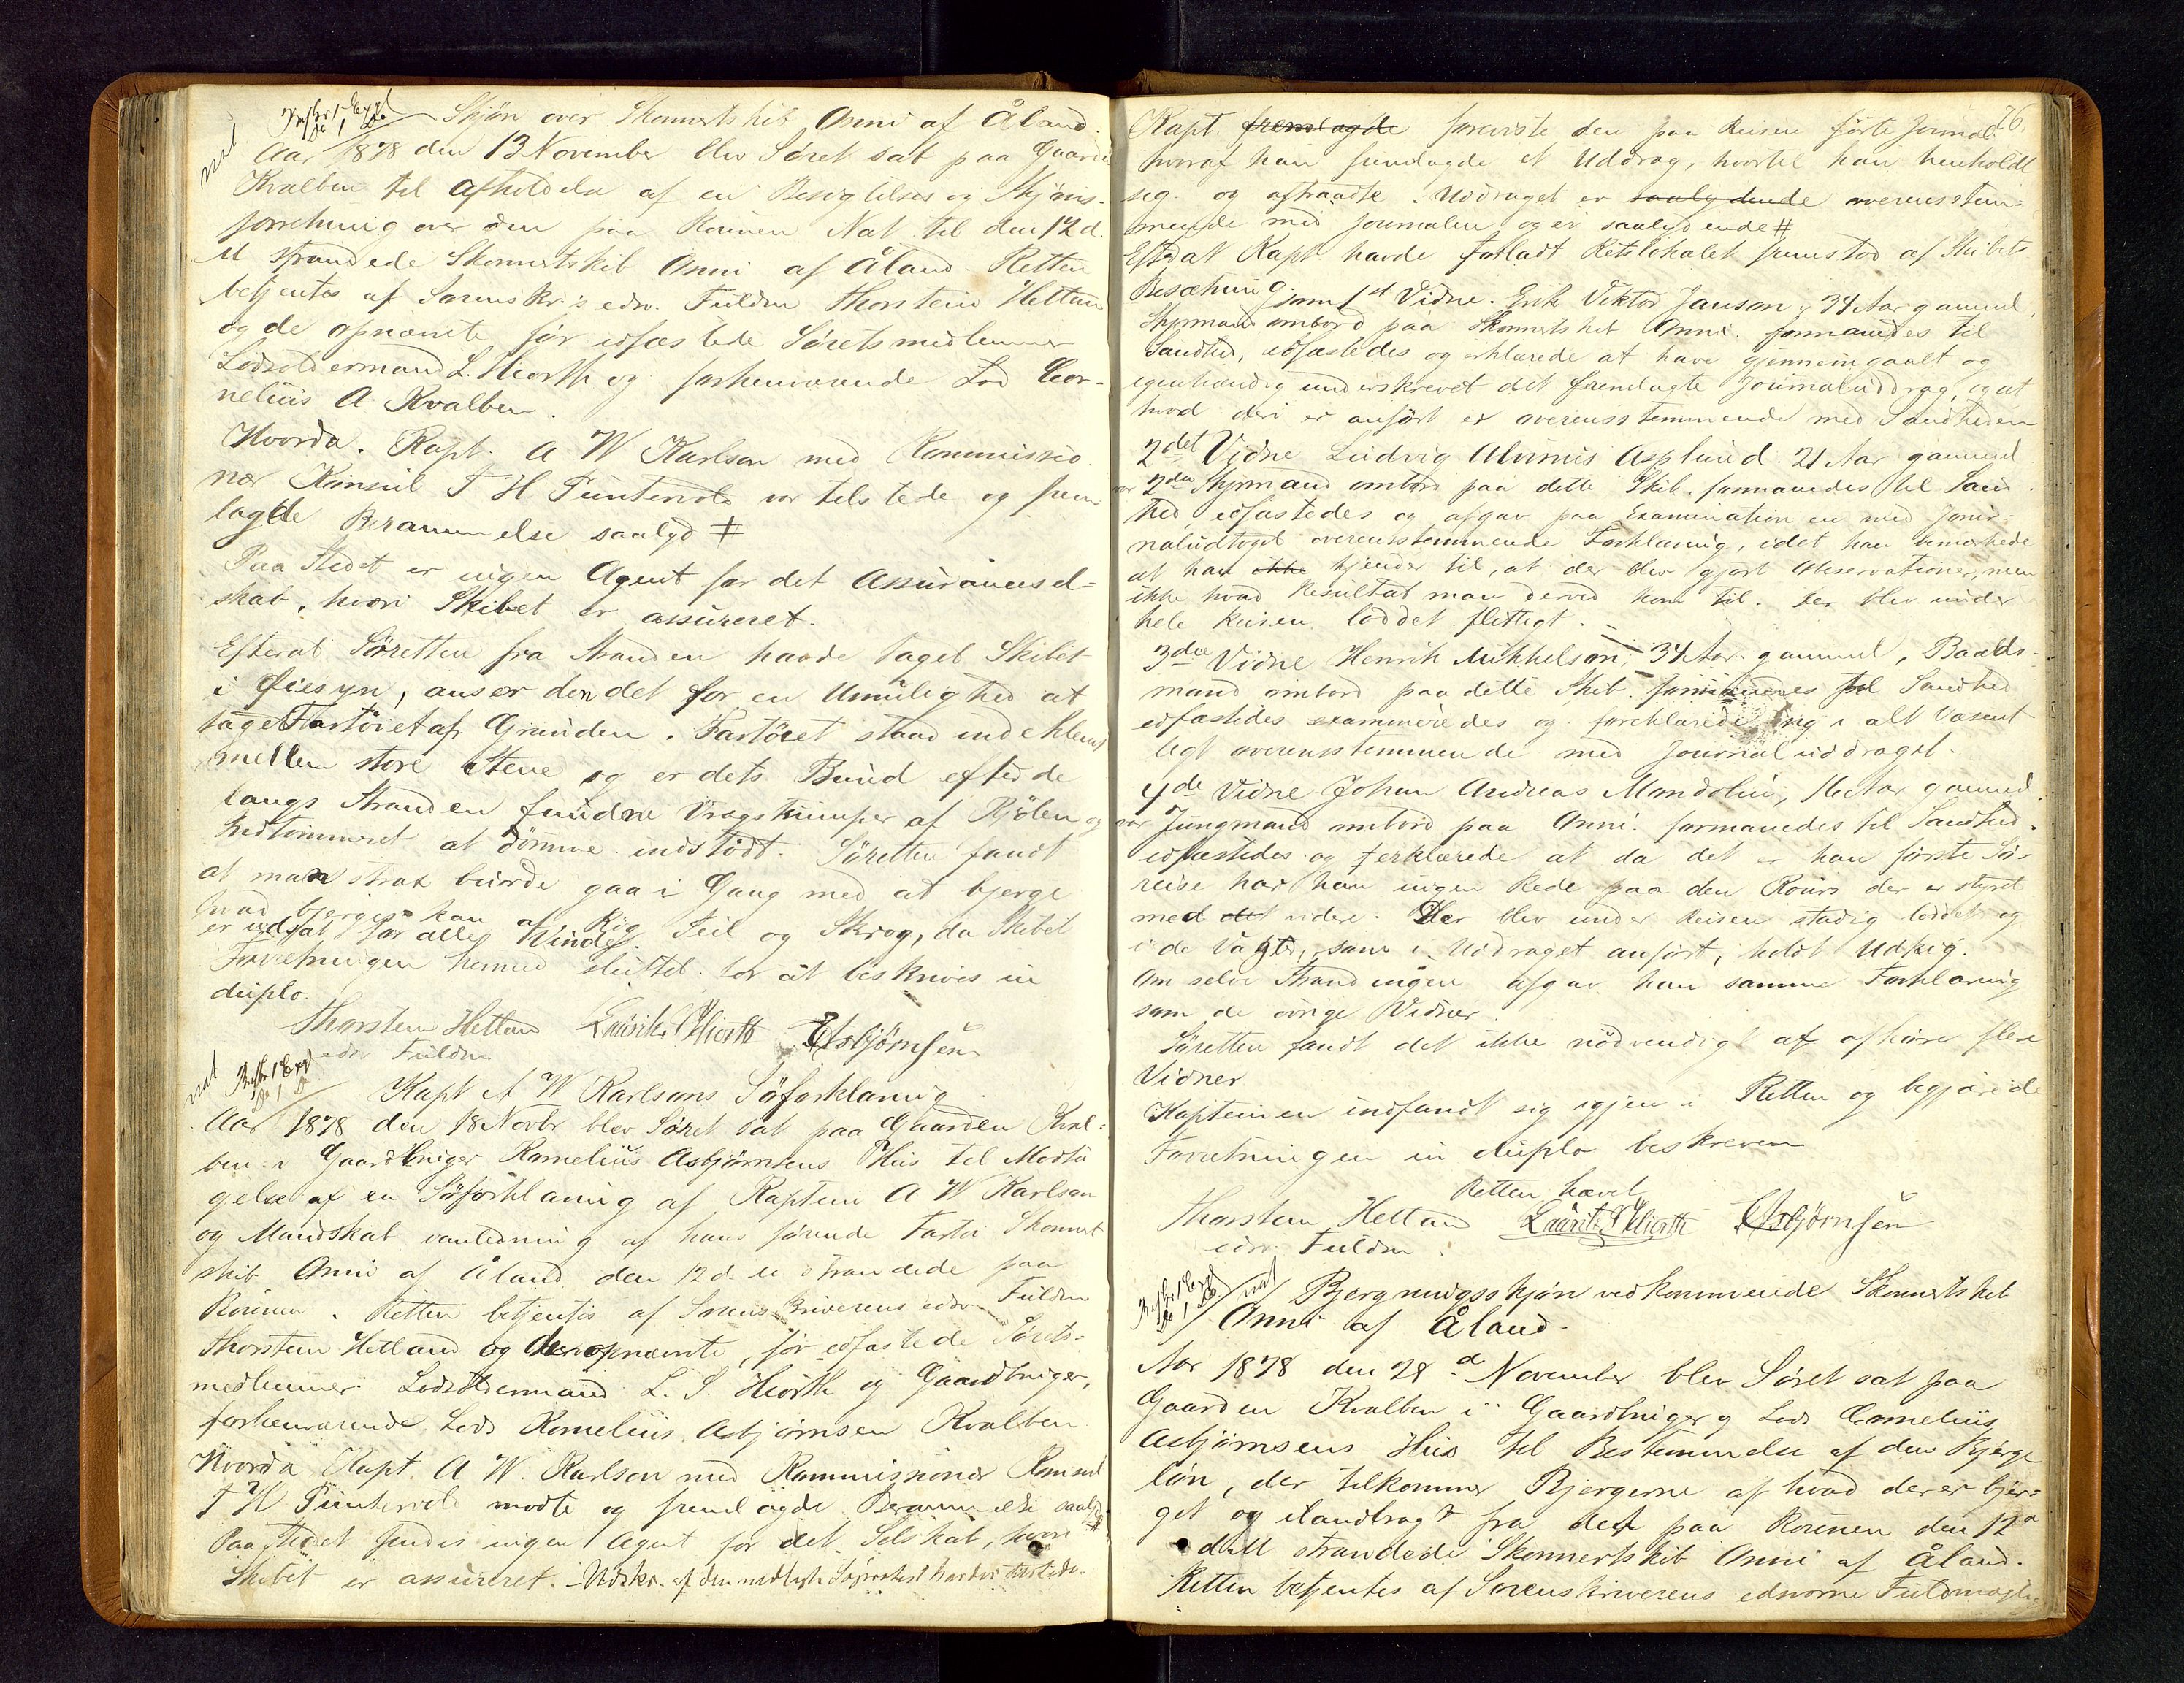 Skjøn over Skonnertskib Onni af Åland.
Aar 1878 den 13 November blev Søret sat paa Gaarden
Kvalben til Afholdelse af en Besigtelses og Skjøns-
forretning over den paa Rounen Nat til den 12 d.
M strandede Skonnertskib Onni af Åland. Retten
betjentes af Sorenskr's edsv. Fuldm Thorstein Hetland
og de opnævnte før edfæstede Søretsmedlemmer
Lodsoldermand L. Hiorth og forhenværende Lods Cor-
nelius A. Kvalben.
Hvorda. Kapt. A W Karlson med Kommissio
nær Konsul T H Puntervold var tilstede og frem
lagde Berammelse saalyd #
Paa Stedet er ingen Agent for det Assuransesel-
skab, hvori Skibet er assureret.
Efterat Søretten fra Stranden havde taget Skibet
i Øiesyn, anser den det for en Umulighed at
tage Fartøiet af Grunden. Fartøiet staar indeklemt
mellem store Stene og er dets Bund efter de
langs Stranden fundne Vragstumper af Kjølen og
Bundtømmeret at dømme indstødt. Søretten fandt
at man strax burde gaa i Gang med at bjerge
hvad bjerges kan af Rig Seil og Skrog, da Skibet
er udsat for alle Vinde.
Forretningen hermed sluttet for at beskrives in
duplo.
Thorstein Hetland Laurits S Hiorth C Asbjørnsen
edsv Fuldm
Kapt A W Karlsons Søforklaring
Aar 1878 den 18 Novbr blev Søret sat paa Gaarden Kval-
ben i Gaardbruger Kornelius Asbjørnsens Hus til Modta
gelse af en Søforklaring af Kaptein A W Karlson
og Mandskab i anledning af hans førende Fartøi Skonnert
skib Onni af Åland den 12 d. M strandede paa
Rounen. Retten betjentes af Sorenskriverens edsv. Fuldm
Thorstein Hetland og de opnævnte, før edfæstede Sørets-
medlemmer Lodsoldermand L. S. Hiorth og Gaardbruger,
forhenværende Lods Kornelius Asbjørnsen Kvalben
Hvorda Kapt. A W. Karlson med Kommissionær Konsul
T H Puntervold mødte og fremlagde Berammelse saalyd #
Paa Stedet findes ingen Agent for det Selskab, hvori
Skibet er assureret. Udskr. af den medlagte Søprotest
76.
Kapt. fremlagde foreviste den paa Reisen førte Journal
hvoraf han fremlagde et Uddrag, hvortil han henholdt
sig og aftraadte. Uddraget er saalydende overensstem-
mende med Journalen og er saalydende #
Efterat Kapt havde forladt Retslokalet fremstod af Skibets
Besætning som 1st Vidne. Erik Viktor Janson, 34 Aar gammel,
Styrmand ombord paa Skonnertskib Onni. formanedes til
Sandhed, edfæstedes og erklærede at have gjennemgaaet og
egenhændig underskrevet det fremlagte Journaluddrag, og at
hvad deri er anført er overensstemmende med Sandheden
2det Vidne Ludvig Alvinus Asplund. 21 Aar gammel
var 2den Styrmand ombord paa dette Skib. formanedes til Sand
hed edfæstedes og afgav paa Examination en med Jour-
naludtoget overensstemmende Forklaring, idet han bemærkede
at han ikke kjender til, at der blev gjort Observationer, men
ikke hvad Resultat man derved kom til. Der blev under
hele Reisen loddet flittigt.
3die Vidne Henrik Mikkelson, 34 Aar gammel, Baads-
mand ombord paa dette Skib. formanedes til Sandhed
edfæstedes examineredes og forklarede sig i alt Væsent
ligt overensstemmende med Journaluddraget.
4de Vidne Johan Andreas Mandolin, 16 Aar gammel
var Jungmand ombord paa Onni. formanedes til Sandhed.
edfæstedes og forklarede at da det er han første Sø-
reise har han ingen Rede paa den Kours der er styret
med det videre. Der blev under Reisen stadig loddet og
i de Vagter, som i Uddraget anført, holdt Udkig.
Om selve Strandingen afgav han samme Forklaring
som de øvrige Vidner.
Søretten fandt det ikke nødvendigt at afhøre flere
Vidner
Kapteinen indfandt sig igjen i Retten og begjærede
Forretningen in duplo beskreven
Retten hævet
Thorstein Hetland Laurits S Hiorth C Asbjørnsen
edsv. Fuldm.
Bjergningsskjøn vedkommende Skonnertskib
Onni af Åland.
Aar 1878 den 28de November blev Søret sat paa
Gaarden Kvalben i Gaardbruger og Lods Cornelius
Asbjørnsens Hus til Bestemmelse af den Bjerge
løn, der tilkommer Bjergerne af hvad der er bjer-
get og ilandbragt fra det paa Rounen den 12te
d M strandede Skonnertskib Onni af Åland.
Retten betjentes af Sorenskriverens edsvorne Fuldmægtig